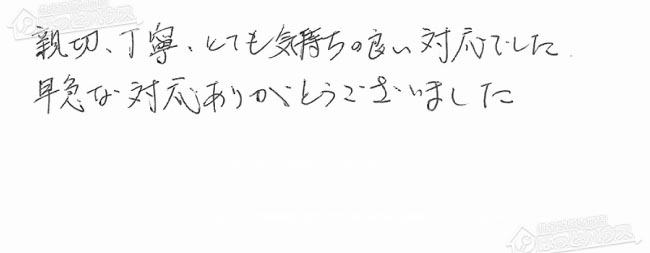 親切、丁寧、とても気持ちの良い対応でした
早急な対応ありがとうございました